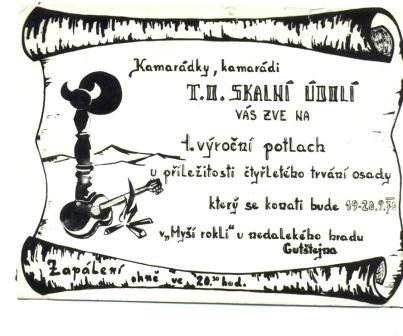 Kamarádky, kamarádi
T.O. SKALNÍ ÚDOLÍ
VÁS ZVE NA
1. výroční potlach
u příležitosti čtyřletého trvání osady
který se konati bude 19-20.9.
v „Myší rokli" u nedalekého hradu
Gutštejna
Zapálení ohně ve 20.30 hod.